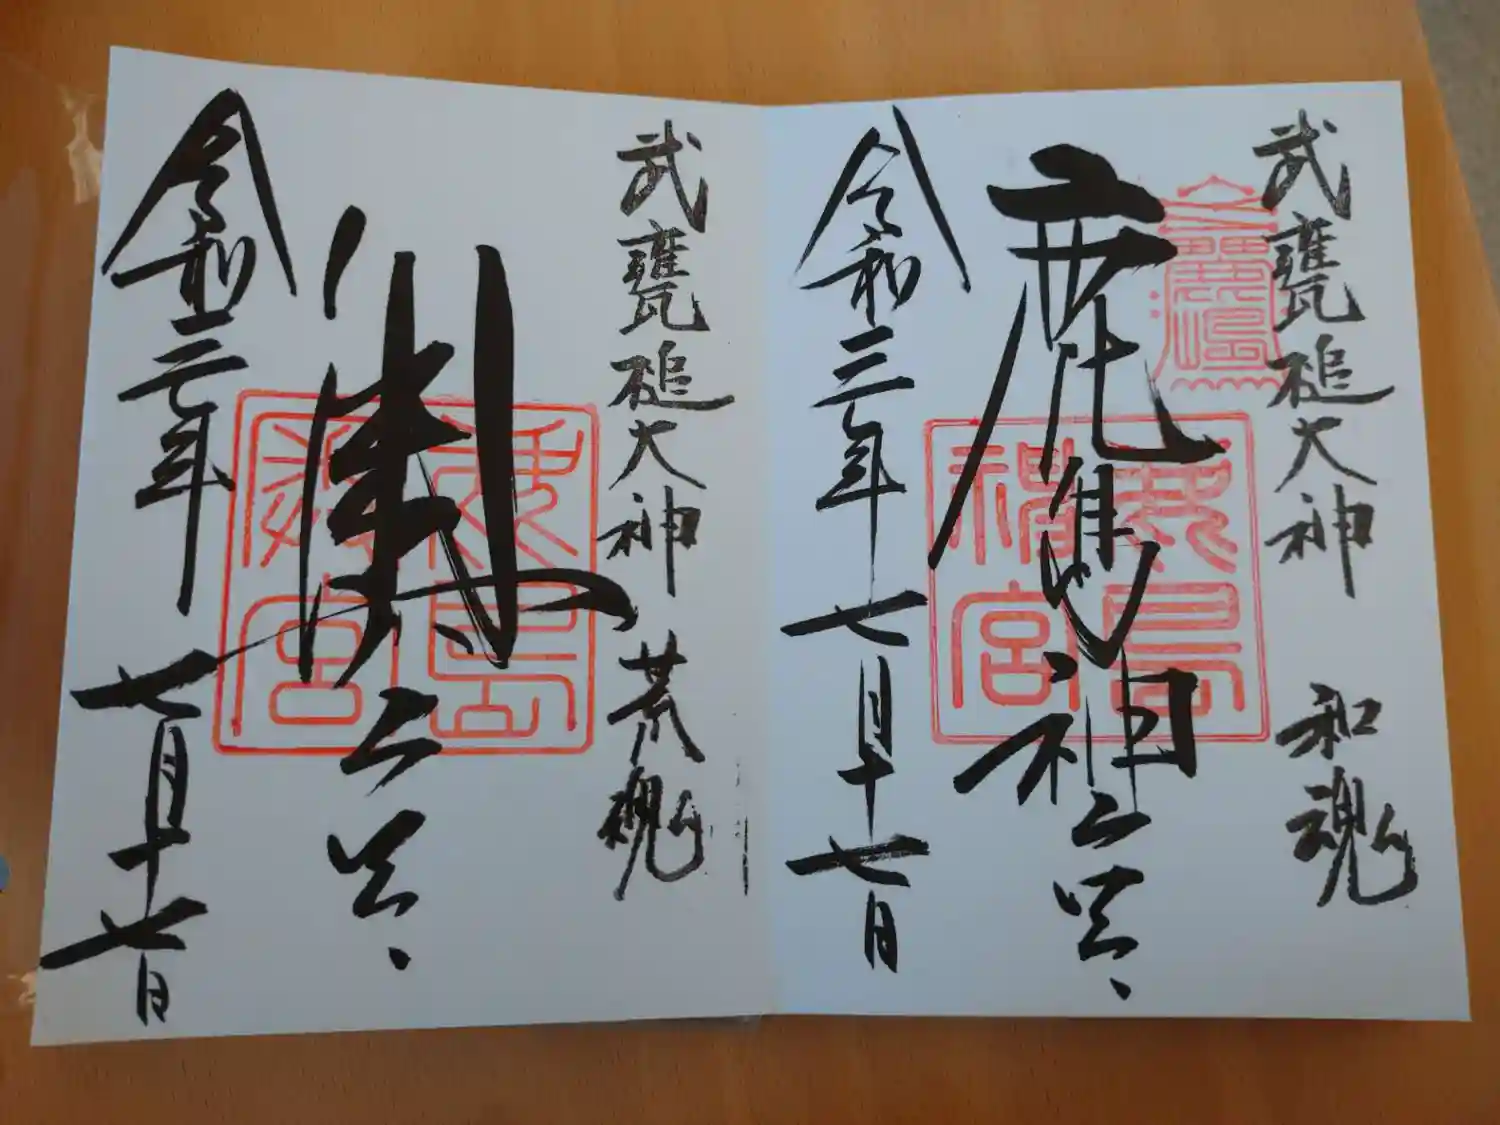 武甕槌大神 和魂
鹿島神宮
鹿島神宮
令和三年七月十七日
武甕槌大神 荒魂
奥宮
鹿島奥宮
令和三年七月十七日